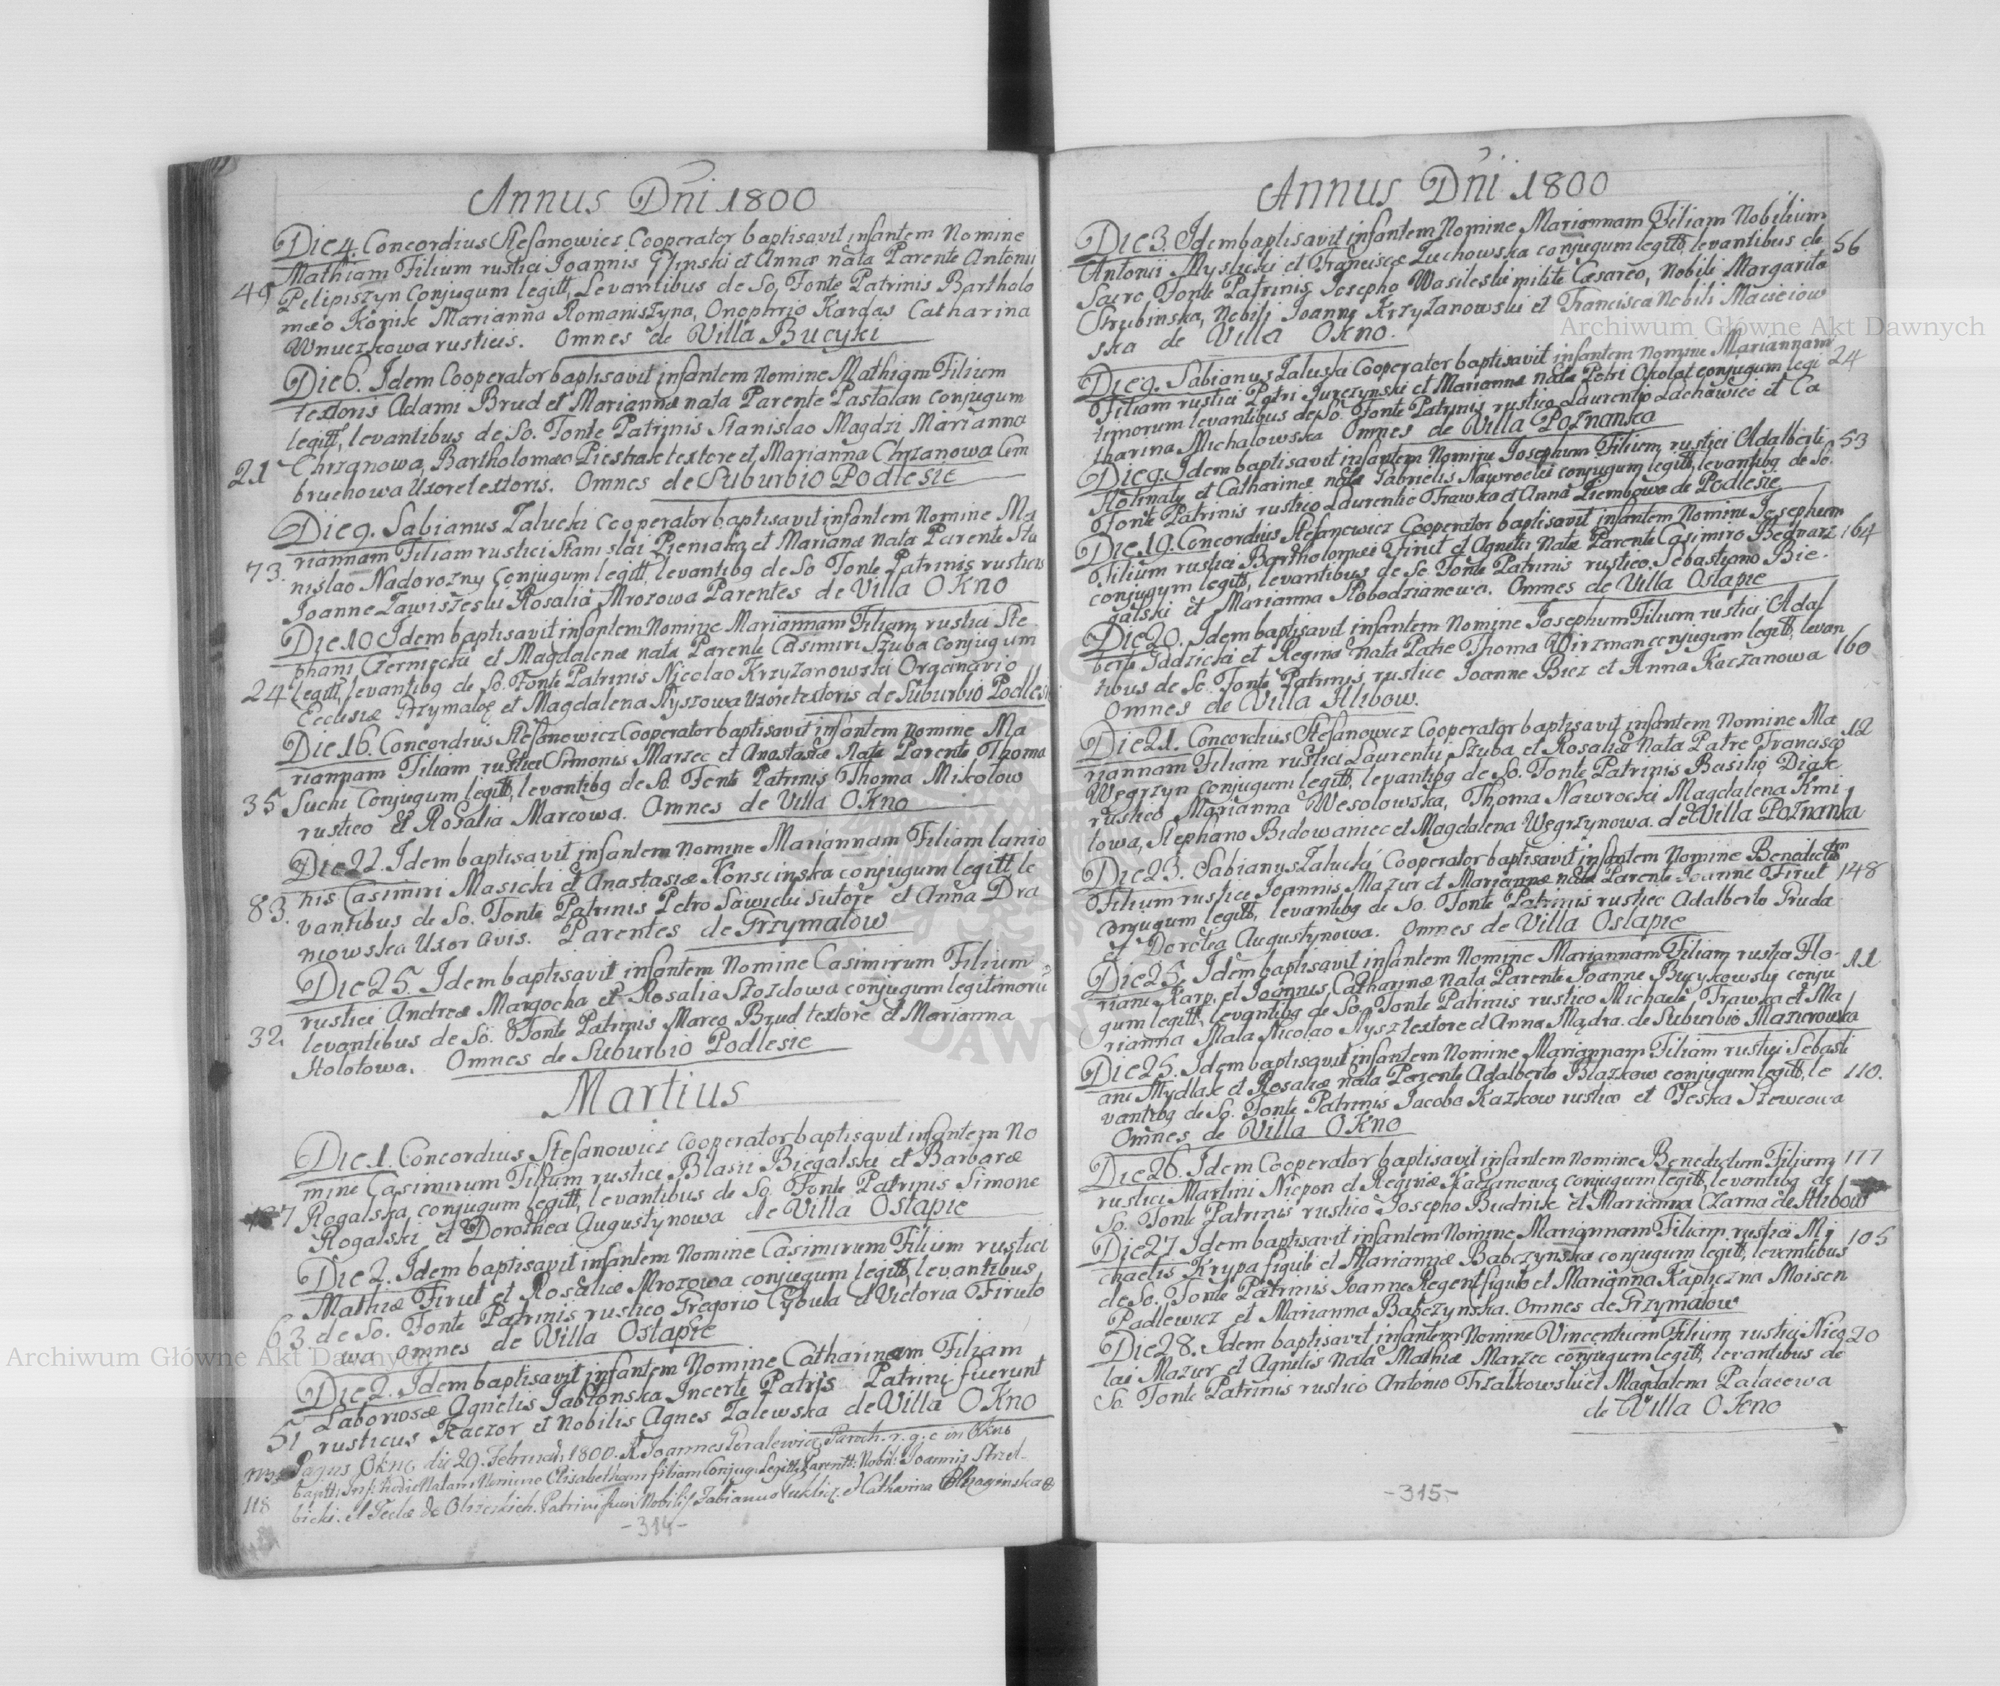 Annus Dni 1800
Die 4. Concordius Stefanowicz Cooperator baptisavit infantem Nomine
Mathiam Filium rustici Joannis Glinski et Annæ nata Parente Antonii
49 Pelipiszyn Conjugum legitt, Levantibus de So, Fonte Patrinis Bartholo
mæo Konik Marianna Romaniszyna, Onophrio Kardas Catharina
Wnuczkowa rusticis. Omnes de Villa Bucyki
Die 6. Idem Cooperator baptisavit infantem Nomine Mathiam Filium
textoris Adami Brud et Mariannæ nata Parente Pastolan conjugum
legitt, levantibus de So. Fonte Patrinis Stanislao Magdzi Marianna
21 Chrzanowa, Bartholomæo Piestrak textore et Marianna Chrzanowa Cem
bruchowa Uxore textoris. Omnes de Suburbio Podlesie
Die 9. Sabianus Zalucki Cooperator baptisavit infantem Nomine Ma
riannam Filiam rustici Stanislai Pieniaka et Marianæ nata Parente Sta
73. nislao Nadorozny Conjugum legitt, levantibg de So Fonte Patrinis rusticis
Joanne Zawiszeski Rosalia Mrozowa Parentes de Villa OKno
Die 10 Idem baptisavit infantem Nomine Mariannam Filiam rustici Ste
phani Czerniecki et Magdalenæ nata Parente Casimiri Szuba Conjugum
24 legitt, levantibg de So. Fonte Patrinis Nicolao Krzyzanowski Organario
Ecclesiæ Grzymaloę et Magdalena Nyszowa Uxore textoris de Suburbio Podlesie
Die 16. Concordius Stefanowicz Cooperator baptisavit infantem Nomine Ma
riannam Filiam rustici Simonis Marzec et Anastasiæ Nata Parente Thoma
35 Suchi Conjugum legitt, levantibg de So. Fonte Patrinis Thoma Mikolow
rustico et Rosalia Marcowa. Omnes de Villa OKno
Die 22. Idem baptisavit infantem Nomine Mariannam Filiam lanio
nis Casimiri Masicki et Anastasiæ Konscinska conjugum legitt, le
83. vantibus de So. Fonte Patrinis Petro Sawicki Sutore et Anna Dra
niowska Uxor Avis. Parentes de Grzymalow
Die 25. Idem baptisavit infantem Nomine Casimirum Filium
rustici Andreæ Margocha et Rosalia Stozdowa conjugum legitimoru
32. levantibus de So. Fonte Patrinis Marco Brud textore et Marianna
Stolotowa. Omnes de Suburbio Podlesie
Martius
Die 1. Concordius Stefanowicz Cooperator baptisavit infantem No
mine Casimirum Filium rustici Blasii Biegalski et Barbaræ
Rogalska, conjugum legitt, levantibus de So. Fonte Patrinis Simone
Rogalski et Dorothea Augustynowa de Villa Ostapie
Die 2. Idem baptisavit infantem Nomine Casimirum Filium rustici
Mathiæ Firut et Rosaliæ Mrozowa conjugum legitt, levantibus
63 de So. Fonte Patrinis rustico Gregorio Cybula et Victoria Firuto
wa omnes de Villa Ostapie
Die 2. Idem baptisavit infantem Nomine Catharinam Filiam
Laboriosæ Agnetis Jablonska Incerti Patris Patrini fuerunt
51 rusticus Kaczor et Nobilis Agnes Zalewska de Villa OKno
Pagus Okno, die 29. Februarii 1800. R. Joannes Paroch. r. g. c. in Okno
bapt: Inf: hodie Natam Nomine Elisabetham filiam Conjug: Legitt Parentt: Nobil: Joannis Strzel-
118 bicki et Teclæ de Patrini fuere Nobiles Fabianus et Catharina
-314-
Annus Dni 1800
Die 3. Idem baptisavit infantem Nomine Mariannam Filiam Nobilium
Antonii Myslicki et Franciscæ Zuchowska conjugum legitt, levantibus de 56
Sacro Fonte Patrinis Josepho Wasileski milite Cæsareo, Nobili Margarita
Strubinska, Nobili Joanne Krzyzanowski et Francisca Nobili Maciejow
ska de Villa OKno.
Die 9. Sabianus Zaluski Cooperator baptisavit infantem Nomine Mariannam 24
Filiam rustici Petri Jurczynski et Mariannæ nata Petri Czolat conjugum legi
timorum levantibus de So. Fonte Patrinis rustico Laurentio Lachowiec et Ca
tharina Michalowska Omnes de Villa Poznanka
Die 9. Idem baptisavit infantem Nomine Josephum Filium rustici Adalberti 53
Hotinaty et Catharinæ nata Gabrielis Nawrocki conjugum legitt, levantibg de So.
Fonte Patrinis rustico Laurentio Trawka et Anna Ziembowa de Podlesie
Die 19. Concordius Stefanowicz Cooperator baptisavit infantem Nomine Josephum
Filium rustici Bartholomæi Firut et Agnetis Nata Parente Casimiro Bednarz 164
conjugum legitt, levantibus de So Fonte Patrinis rustico Sebastiano Bie-
galski et Marianna Slobodzianowa. Omnes de Villa Ostapie
Die 20. Idem baptisavit infantem Nomine Josephum Filium rustici Adal
berti Sadzicki et Regina Nata Patre Thoma Wirzman conjugum legitt, levan 160
tibus de So. Fonte Patrinis rustico Joanne Biez et Anna Kaczanowa
Omnes de Villa Hlibow.
Die 21. Concordius Stefanowicz Cooperator baptisavit infantem Nomine Ma 12
riannam Filiam rustici Laurentii Szuba et Rosaliæ Nata Patre Francisco
Wegrzyn conjugum legitt, levantibg de So. Fonte Patrinis Basilio Diak
rustico Marianna Wesolowska, Thoma Nawrocki Magdalena Kmi
towa, Stephano Bidowaniec et Magdalena Węgrzynowa de Villa Poznanka
Die 23. Sabianus Zalucki Cooperator baptisavit infantem Nomine Benedictum
Filium rustici Joannis Mazur et Mariannæ nata Parente Joanne Firut 148
conjugum legitt, levantibg de So. Fonte Patrinis rustico Adalberto Pruda
et Dorotea Augustynowa. Omnes de Villa Ostapie
Die 25. Idem baptisavit infantem Nomine Mariannam Filiam rustici Flo- 11
riani Karp. et Joannis Catharinæ nata Parente Joanne Bucykowsky conju
gum legitt, levantibg de So. Fonte Patrinis rustico Michaele Trawka et Ma
rianna Mala Nicolao Nysz textore et Anna Mądra. de Suburbio Mazurowka
Die 25. Idem baptisavit infantem Nomine Mariannam Filiam rustici Sebasti
ani Mydlak et Rosaliæ nata Parente Adalberto Blazkow conjugum legitt, le 110.
vantibg de So. Fonte Patrinis Jacobo Kazkow rustico et Teska Szewcowa
Omnes de Villa OKno
Die 26. Idem Cooperator baptisavit infantem Nomine Benedictum Filium 117
rustici Martini Niepon et Reginæ Kaczanowa conjugum legitt, levantibg de
So. Fonte Patrinis rustico Josepho Budnik et Marianna Czarna de Hlibow
Die 27. Idem baptisavit infantem Nomine Mariannam Filiam rustici Mi 105
chaelis Krypa figuli et Mariannæ Babczynska conjugum legitt, levantibus
de So. Fonte Patrinis Joanne Regent figulo et Marianna Kapliczna Moisen
Padlewicz et Marianna Babczynska. Omnes de Grzymalow
Die 28. Idem baptisavit infantem Nomine Vincentium Filium rustici Nico 20
lai Mazur et Agnetis Nata Mathiæ Marzec conjugum legitt, levantibus de
So. Fonte Patrinis rustico Antonio Trzalkowski et Magdalena Palacowa
de Villa OKno
-315-
Archiwum Główne Akt Dawnych
Archiwum Główne Akt Dawnych